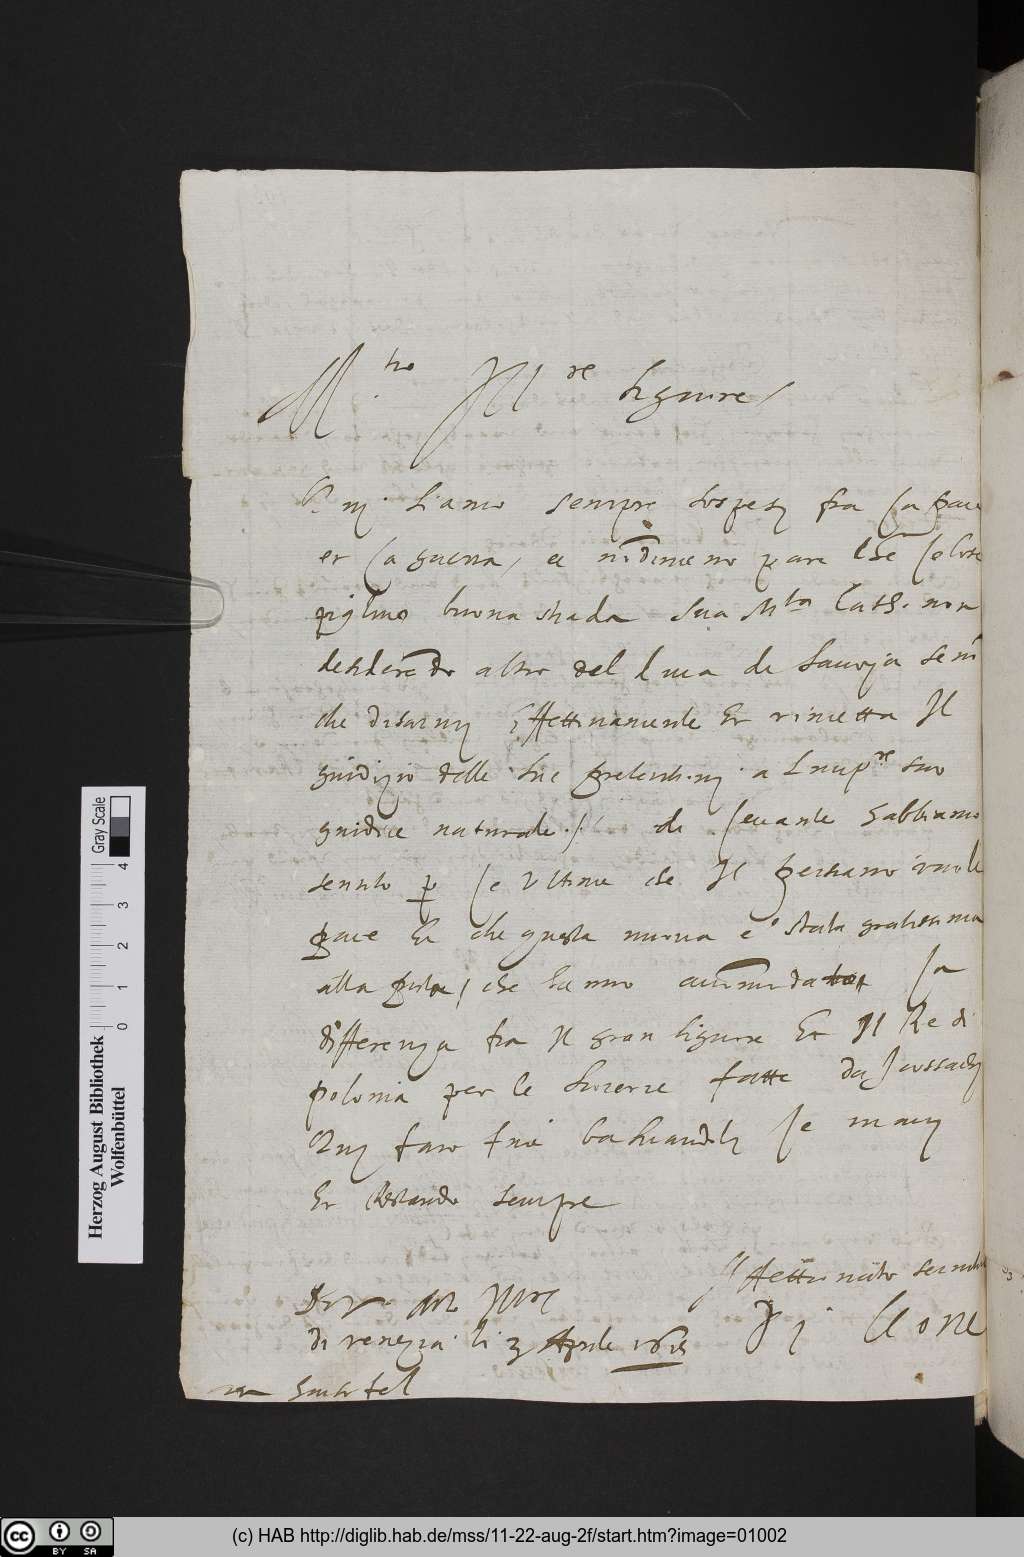 M.to Ill.re Signore /
Qui siamo sempre sospesi fra la pace
et la guerra, et nōdimeno pare che le cose
piglino buona strada Sua M.ta Cath. non
desiderādo altro del Duca de Savoja se nō
che disarmi effettivamente Et rimetta Il
giudizio delle sue pretentioni a L'Imp.re suo
giudice naturale ./. di levante habbiamo
sentito p le ultime che Il persiano vuole
pace Et che questa nuova e' stata gratissima
alla porta, che hanno accōmodata la
differenza fra Il gran signore Et Il Re di
polonia per le scorerie fatte da Cossachi
Qui faro fine baciandoli le mani
Et Restando sempre
Affettionato
D V. M.to Ill.re
di venezia li 3 Aprile 1615
Herzog August Bibliothek
Wolfenbüttel
0 1 2 3 4
Gray Scale
cc BY SA
(c) HAB http://diglib.hab.de/mss/11-22-aug-2f/start.htm?image=01002